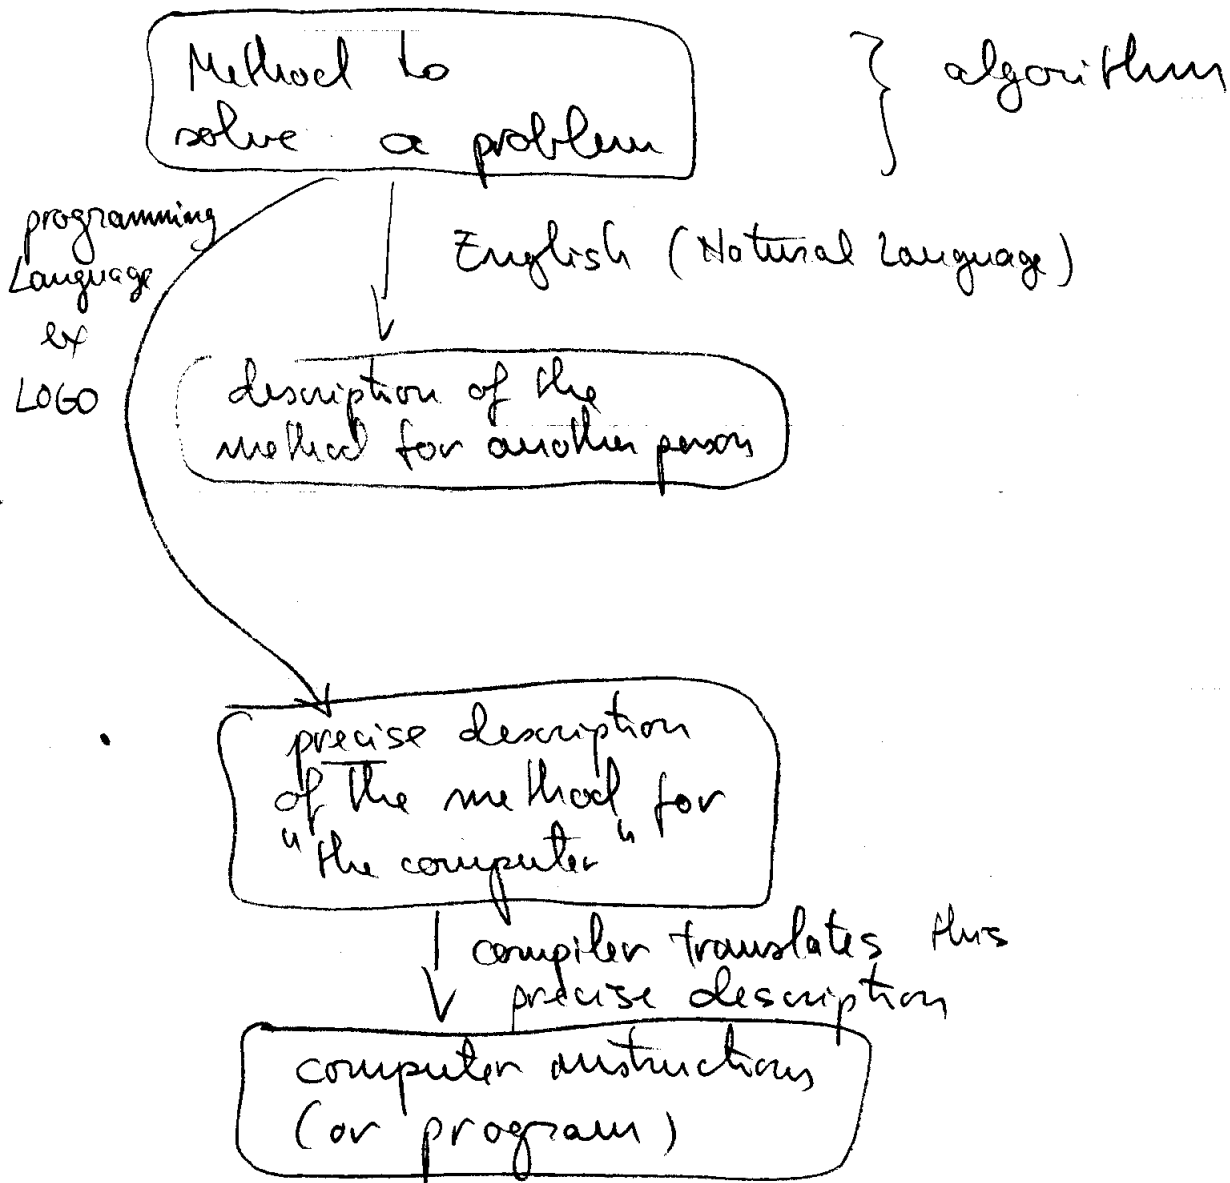 Method to
solve a problem
} algorithm
programming
Language
ex
LOGO
English (Natural Language)
description of the
method for another person
precise description
of the method for
"the computer"
compiler translates this
precise description
computer instructions
(or program)